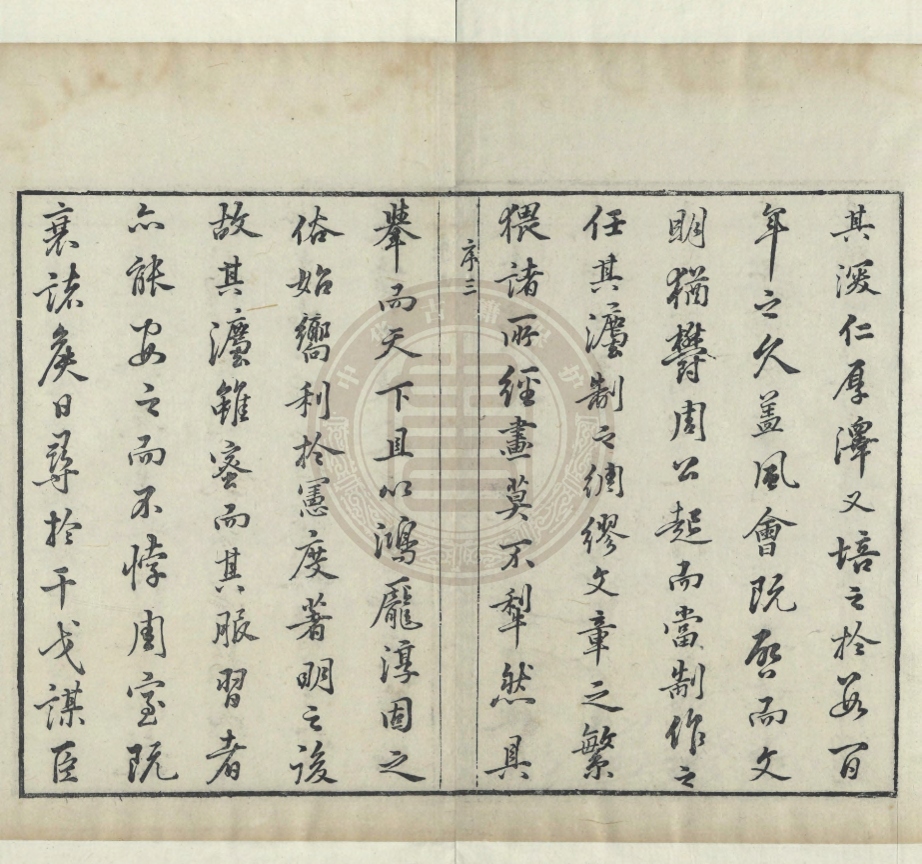 其深仁厚澤又培之於數百
年之久蓋風會既啓而文
明猶欝周公起而當制作之
任其灋制之綢繆文章之繁
猥諸所經畫莫不犁然具
序三
舉而天下且以鴻龐淳固之
俗始嚮利於憲度著明之後
故其灋雖密而其服習者
亦能安之而不悖周室既
衰諸侯日尋於干戈謀臣